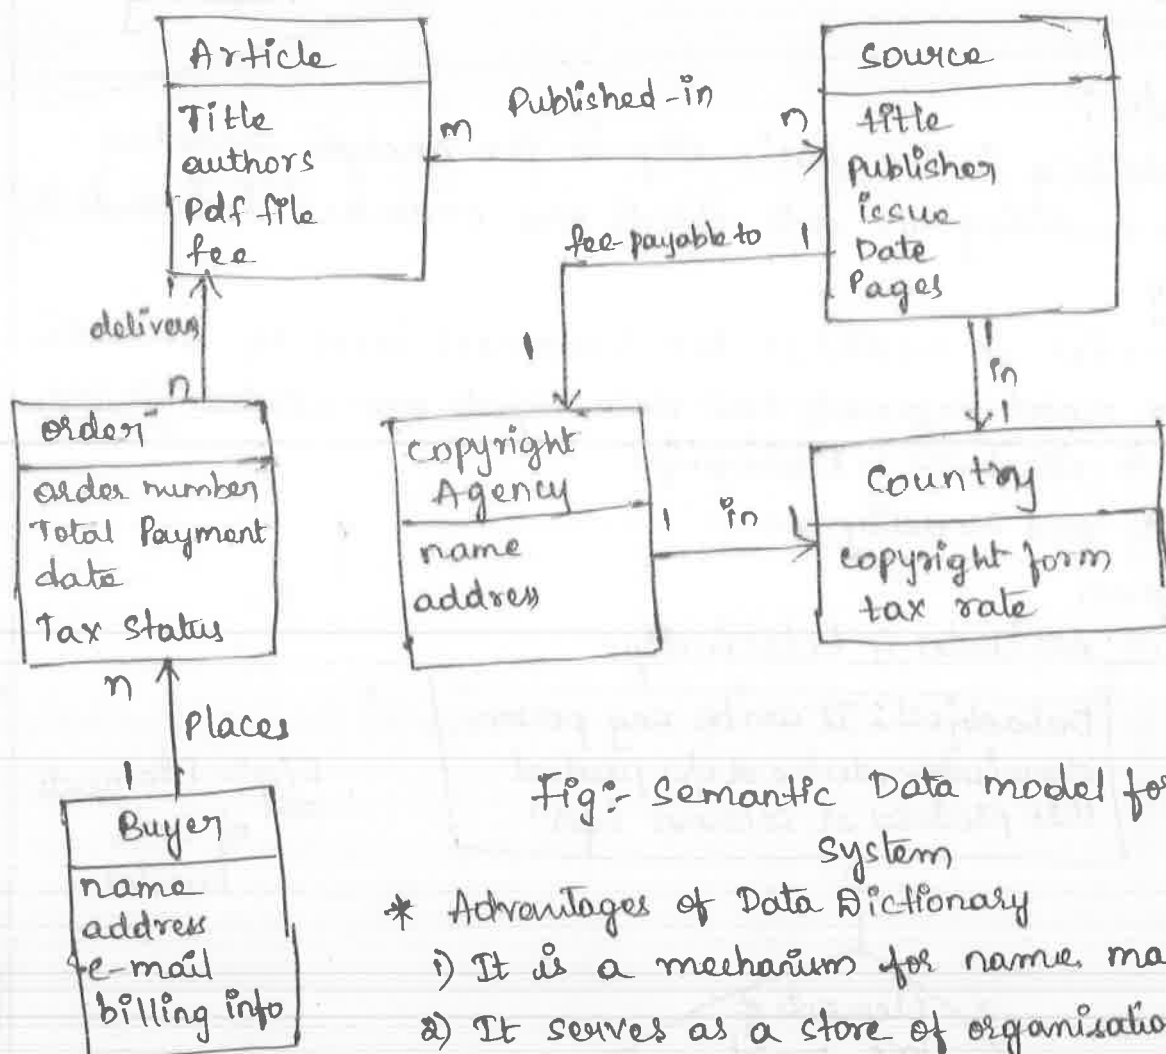 Article
Title
authors
Pdf file
fee
m Published-in n
source
title
Publisher
issue
Date
Pages
fee-payable to 1
1
1
in
1
1
delivers
n
order
order number
Total Payment
date
Tax Status
copyright
Agency
name
address
1 in 1
Country
copyright form
tax rate
n
Places
1
Buyer
name
address
e-mail
billing info
Fig:- Semantic Data model for
system
* Advantages of Data Dictionary
1) It is a mechanism for name
2) It serves as a store of